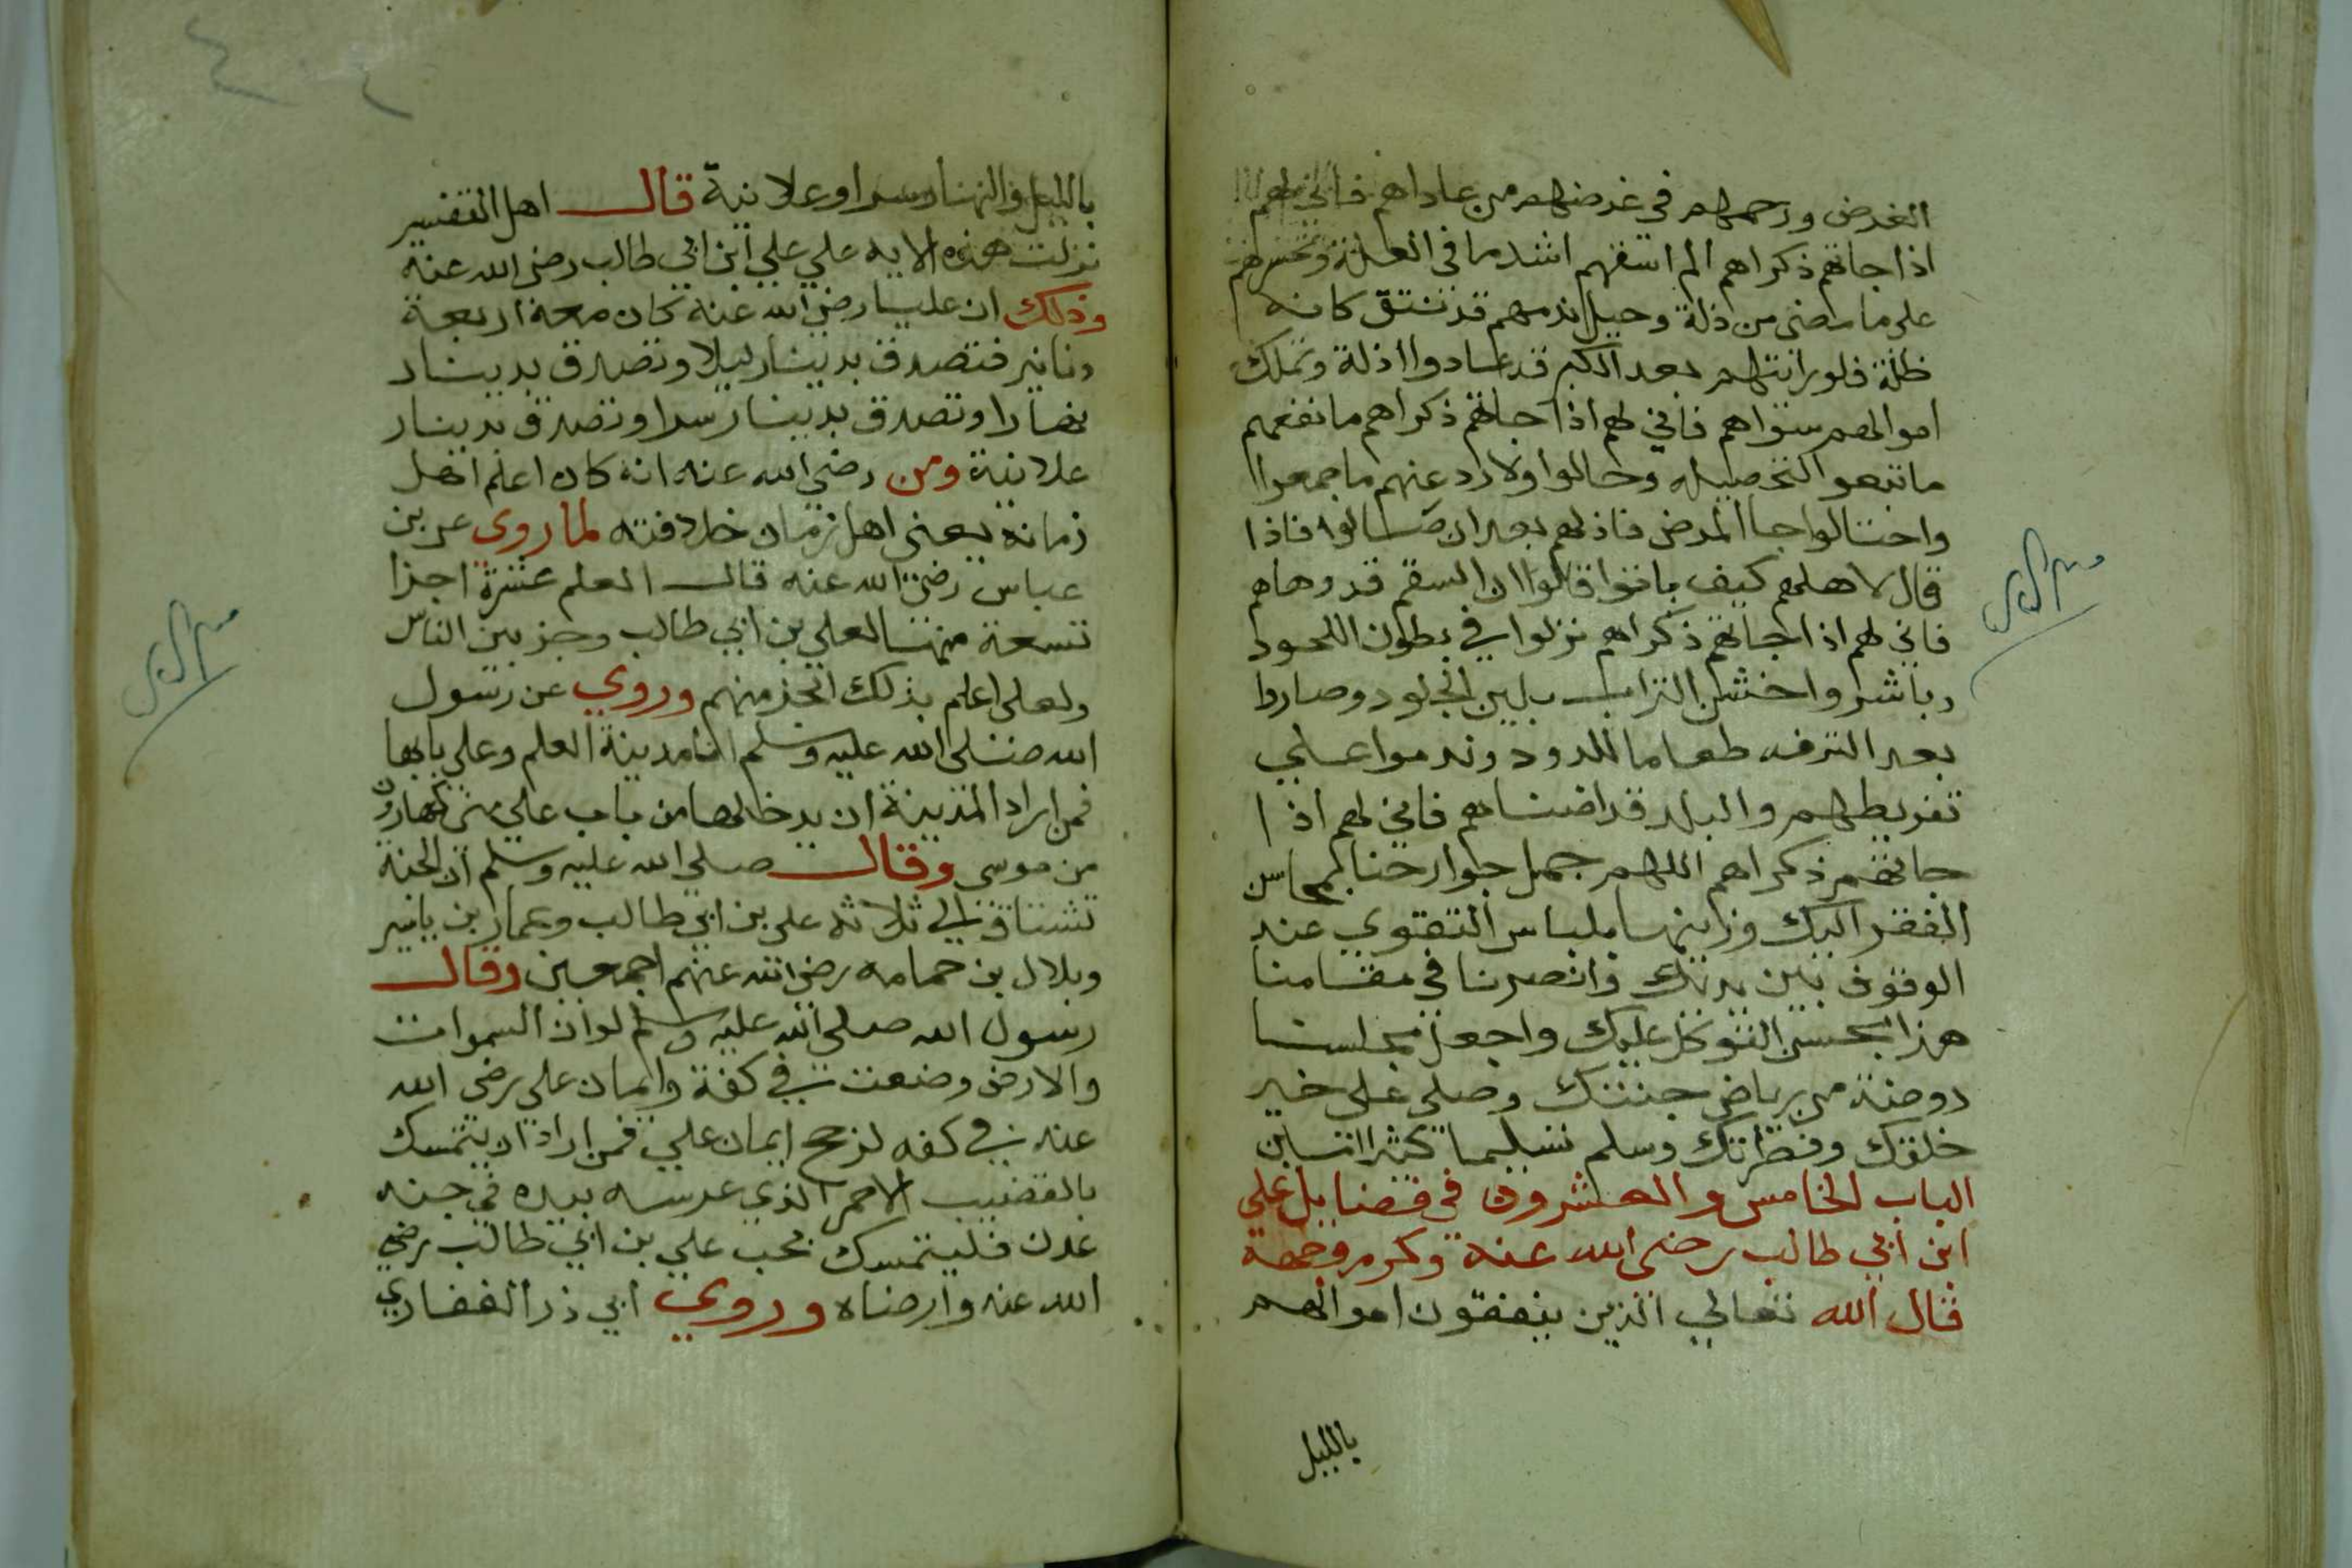 الغرض ورحمهم في غرضهم من عاداهم فاني لهم
اذا جاتهم ذكراهم الم اسفهم اشد ما في العلة وتحسرهم
على ما مضى من ذلة وحبل ندمهم قد نتق كانه
ظلة فلو رايتهم بعد الكبر قد عادوا اذلة وتملك
اموالهم سواهم فاني لهم اذا جاتهم ذكراهم ما نفعهم
ما تبعوا لتحصيله وحالوا ولا رد عنهم ما جمعوا
واحتالوا جا المرض فاذلهم بعد ان صالوا فاذا
قال لاهلهم كيف باتوا قالوا ان السقم قد وهاهم
فاني لهم اذا جاتهم ذكراهم نزلوا في بطون اللحود
وباشروا خشن التراب بلين الجلود وصاروا
بعد الترف طعاما للدود وندموا علي
تفريطهم والبلا قد افناهم فاني لهم اذا
جاتهم ذكراهم اللهم جمل جوارحنا بمحاسن
الفقر اليك وزينها بلباس التقوي عند
الوقوف بين يديك وانصرنا في مقامنا
هذا بحسن التوكل عليك واجعل مجلسنا
روضة من رياض جنتك وصلى على خير
خلقك وفطرتك وسلم تسليما كثيرا امين
الباب الخامس والعشرون في فضايل علي
ابن ابي طالب رضى الله عنه وكرم وجهه
قال الله تعالي الذين ينفقون اموالهم
بالليل
بالليل والنهار سرا وعلانية قال اهل التفسير
نزلت هذه الايه علي علي ابن ابي طالب رضى الله عنه
وذلك ان عليا رضى الله عنه كان معه اربعة
دنانير فتصدق بدينار ليلا وتصدق بدينار
نهارا وتصدق بدينار سرا وتصدق بدينار
علانية ومن رضى الله عنه انه كان اعلم اهل
زمانه يعنى اهل زمان خلافته لما روى عن بن
عباس رضى الله عنه قال العلم عشرة اجزا
تسعة منها لعلي بن ابي طالب وجز بين الناس
ولعلى اعلم بذلك الجز منهم وروي عن رسول
الله صلى الله عليه وسلم انا مدينة العلم وعلي بابها
فمن اراد المدينة ان يدخلها من باب علي مني كهارون
من موسى وقال صلى الله عليه وسلم ان الجنة
تشتاق الي ثلاثه على بن ابي طالب وعمار بن ياسر
وبلال بن حمامه رضى الله عنهم اجمعين وقال
رسول الله صلى الله عليه وسلم لو ان السموات
والارض وضعت في كفة وايمان على رضى الله
عنه في كفه لرجح ايمان علي فمن اراد ان يتمسك
بالقضيب الاحمر الذي غرسه بيده في جنه
عدن فليتمسك بحب علي بن ابي طالب رضي
الله عنه وارضاه وروي ابي ذر الغفاري